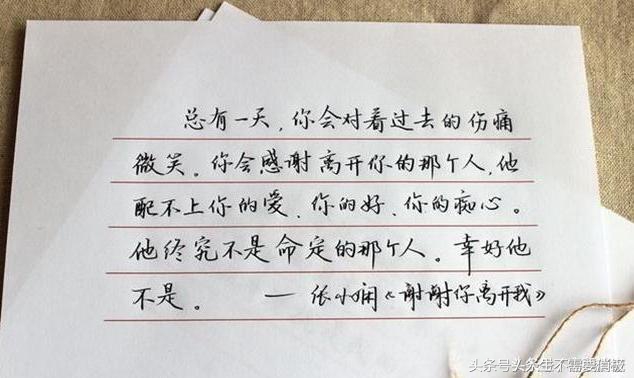 总有一天,你会对着过去的伤痛
微笑。你会感谢离开你的那个人,他
配不上你的爱、你的好、你的痴心。
他终究不是命定的那个人。幸好他
不是。 — 张小娴《谢谢你离开我》
头条号